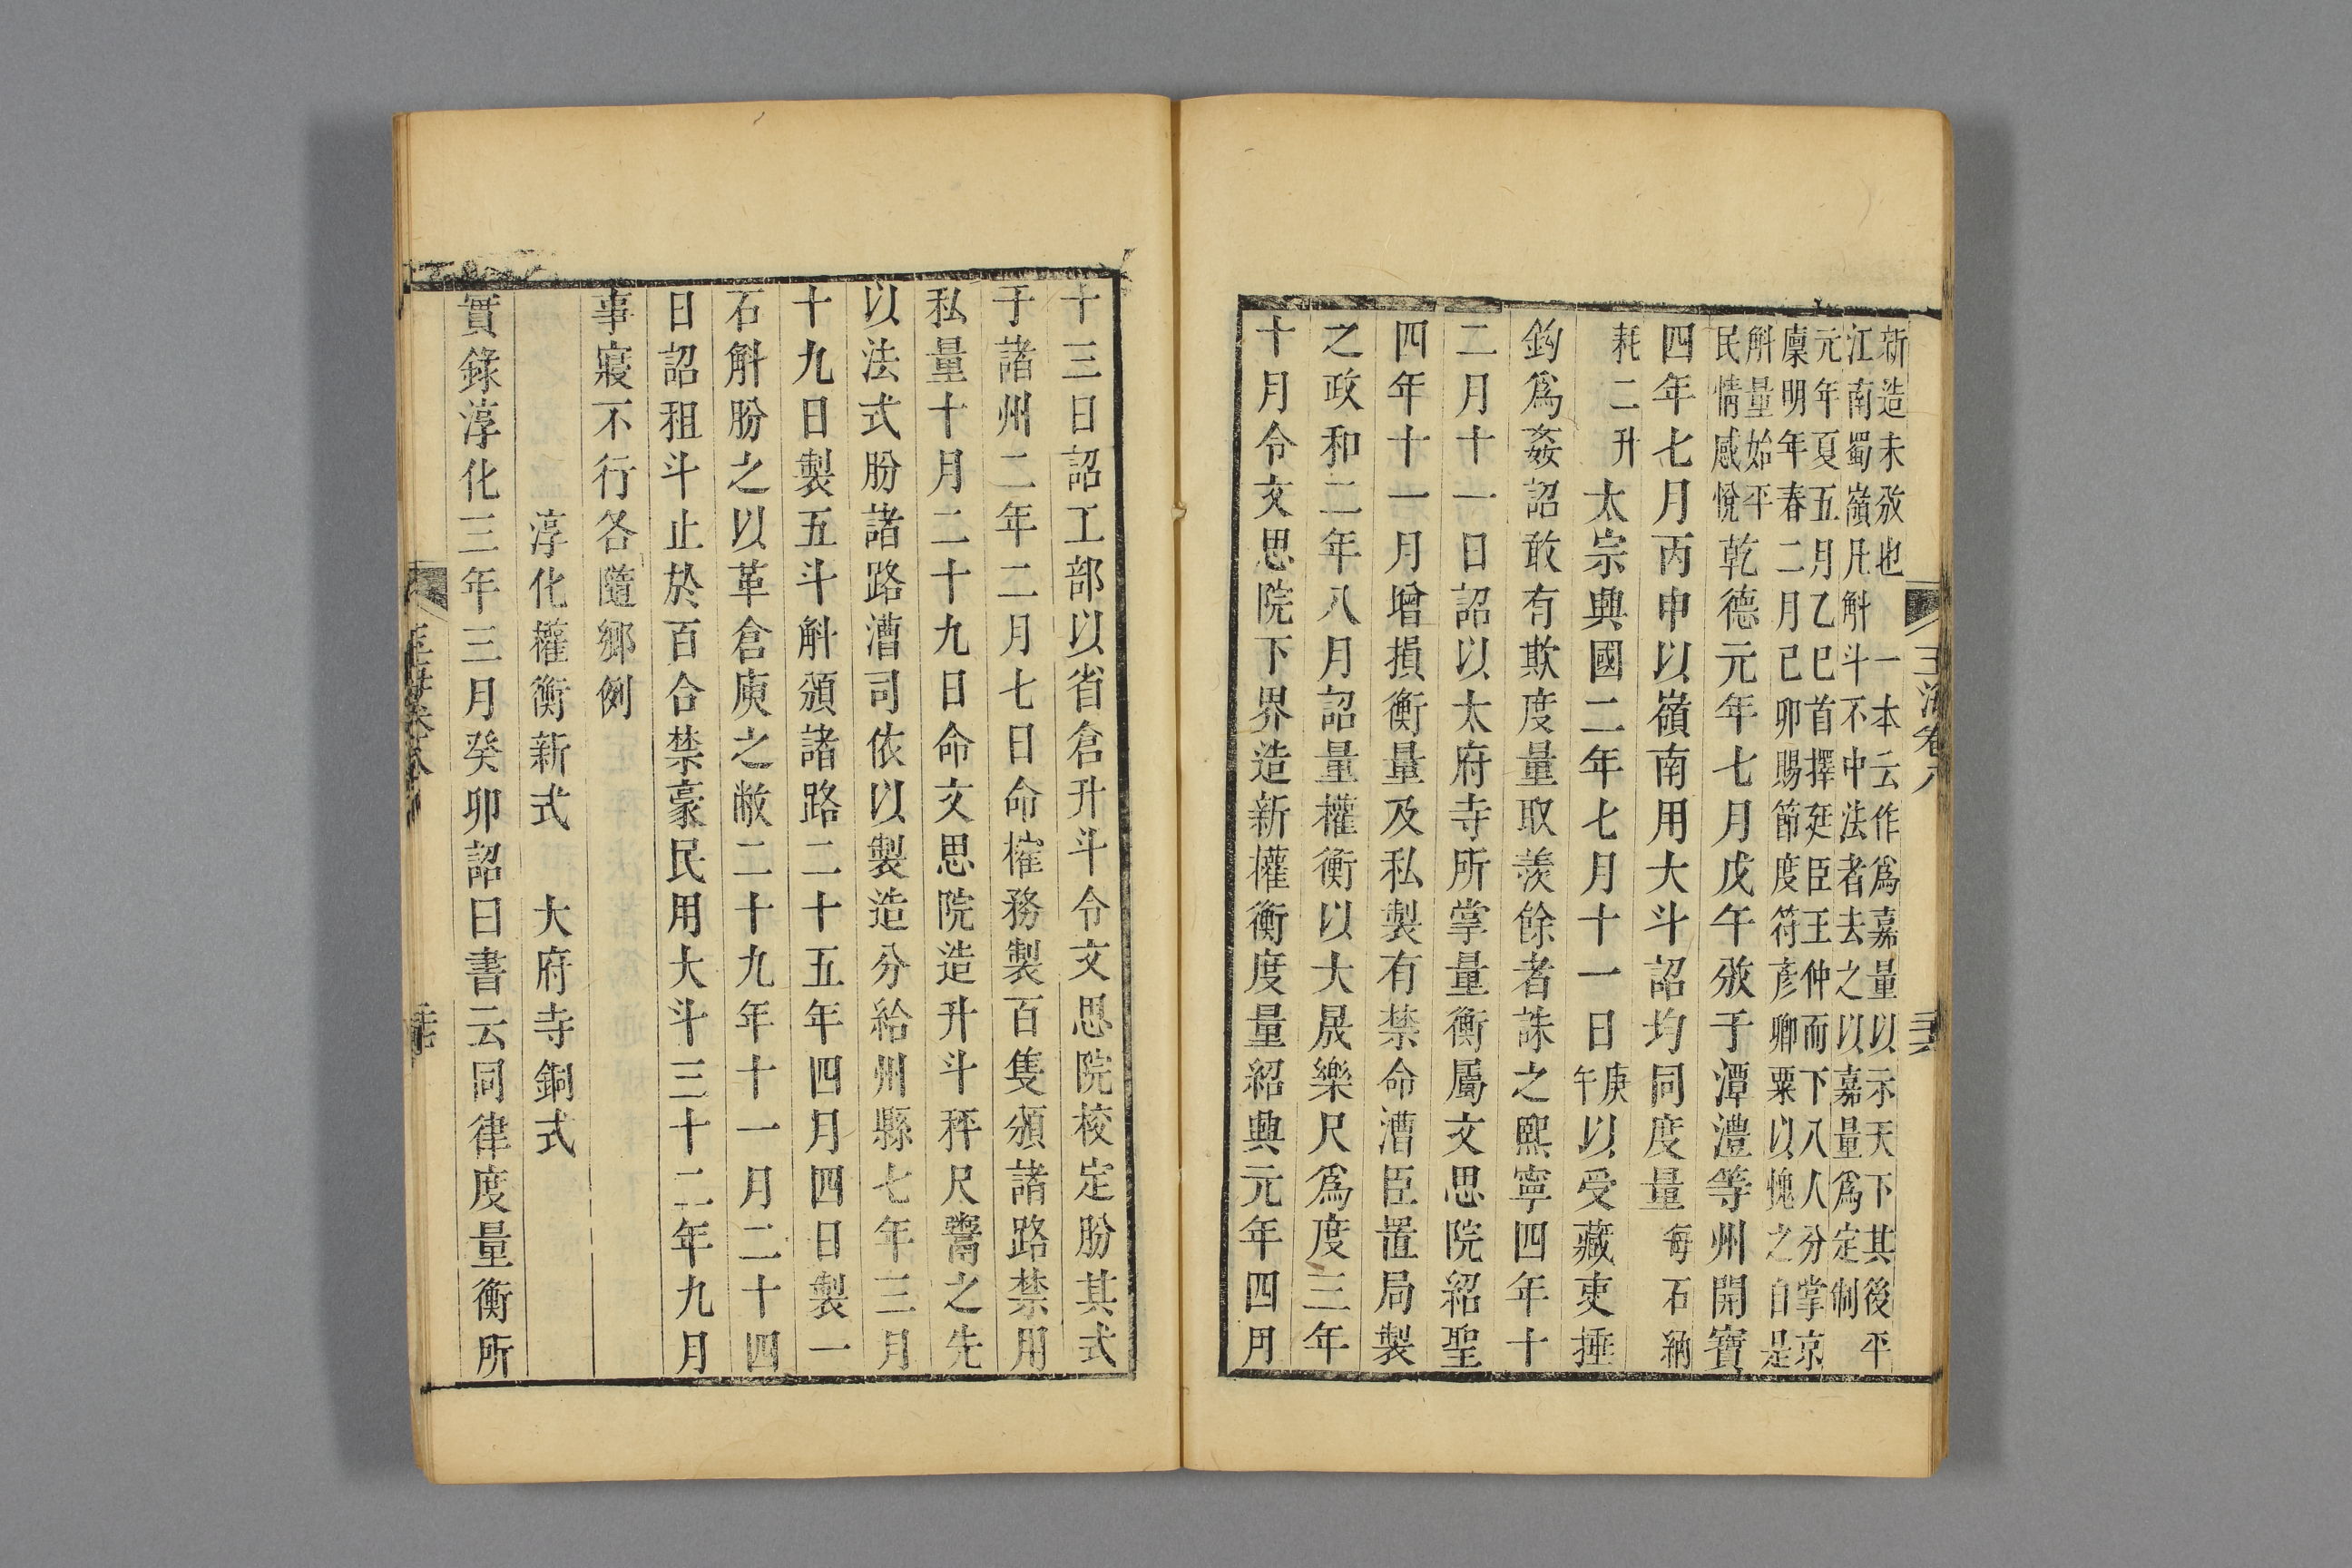 玉海卷八
新造未攽也　一本云作爲嘉量以示天下其後平
江南蜀嶺凡斛斗不中法者去之以嘉量爲定制
元年夏五月乙巳首擇廷臣王仲而下八人分掌京
廩明年春二月己卯賜節度符彥卿粟以愧之自是
斛量始平
民情感悅
乾德元年七月戊午攽于潭澧等州開寶
四年七月丙申以嶺南用大斗詔均同度量每石納
耗二升　太宗興國二年七月十一日庚午以受藏吏捶
鈎爲姦詔敢有欺度量取羨餘者誅之熙寧四年十
二月十一日詔以太府寺所掌量衡屬文思院紹聖
四年十一月增損衡量及私製有禁命漕臣置局製
之政和二年八月詔量權衡以大晟樂尺爲度三年
十月令文思院下界造新權衡度量紹興元年四月
十三日詔工部以省倉升斗令文思院校定肦其式
于諸州二年二月七日命榷務製百隻頒諸路禁用
私量十月二十九日命文思院造升斗秤尺鬻之先
以法式肦諸路漕司依以製造分給州縣七年三月
十九日製五斗斛頒諸路二十五年四月四日製一
石斛肦之以革倉庾之敝二十九年十一月二十四
日詔租斗止於百合禁豪民用大斗三十二年九月
事寢不行各隨鄉例
淳化權衡新式　大府寺銅式
實錄淳化三年三月癸卯詔曰書云同律度量衡所